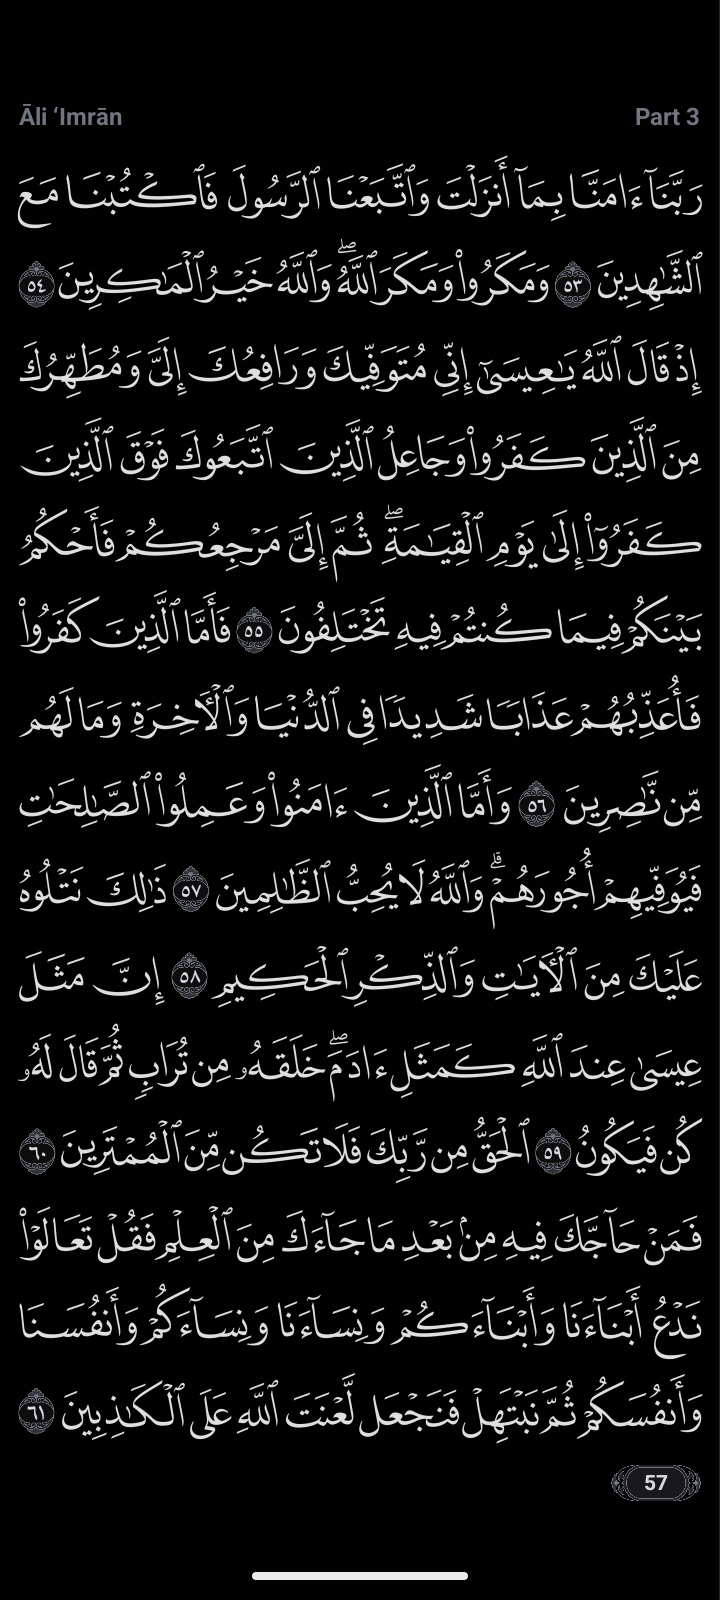 Āli ‘Imrān
Part 3
رَبَّنَآ ءَامَنَّا بِمَآ أَنزَلۡتَ وَٱتَّبَعۡنَا ٱلرَّسُولَ فَٱكۡتُبۡنَا مَعَ
ٱلشَّٰهِدِينَ ٥٣ وَمَكَرُواْ وَمَكَرَ ٱللَّهُۖ وَٱللَّهُ خَيۡرُ ٱلۡمَٰكِرِينَ ٥٤
إِذۡ قَالَ ٱللَّهُ يَٰعِيسَىٰٓ إِنِّي مُتَوَفِّيكَ وَرَافِعُكَ إِلَيَّ وَمُطَهِّرُكَ
مِنَ ٱلَّذِينَ كَفَرُواْ وَجَاعِلُ ٱلَّذِينَ ٱتَّبَعُوكَ فَوۡقَ ٱلَّذِينَ
كَفَرُوٓاْ إِلَىٰ يَوۡمِ ٱلۡقِيَٰمَةِۖ ثُمَّ إِلَيَّ مَرۡجِعُكُمۡ فَأَحۡكُمُ
بَيۡنَكُمۡ فِيمَا كُنتُمۡ فِيهِ تَخۡتَلِفُونَ ٥٥ فَأَمَّا ٱلَّذِينَ كَفَرُواْ
فَأُعَذِّبُهُمۡ عَذَابٗا شَدِيدٗا فِي ٱلدُّنۡيَا وَٱلۡأٓخِرَةِ وَمَا لَهُم
مِّن نَّٰصِرِينَ ٥٦ وَأَمَّا ٱلَّذِينَ ءَامَنُواْ وَعَمِلُواْ ٱلصَّٰلِحَٰتِ
فَيُوَفِّيهِمۡ أُجُورَهُمۡۗ وَٱللَّهُ لَا يُحِبُّ ٱلظَّٰلِمِينَ ٥٧ ذَٰلِكَ نَتۡلُوهُ
عَلَيۡكَ مِنَ ٱلۡأٓيَٰتِ وَٱلذِّكۡرِ ٱلۡحَكِيمِ ٥٨ إِنَّ مَثَلَ
عِيسَىٰ عِندَ ٱللَّهِ كَمَثَلِ ءَادَمَۖ خَلَقَهُۥ مِن تُرَابٖ ثُمَّ قَالَ لَهُۥ
كُن فَيَكُونُ ٥٩ ٱلۡحَقُّ مِن رَّبِّكَ فَلَا تَكُن مِّنَ ٱلۡمُمۡتَرِينَ ٦٠
فَمَنۡ حَآجَّكَ فِيهِ مِنۢ بَعۡدِ مَا جَآءَكَ مِنَ ٱلۡعِلۡمِ فَقُلۡ تَعَالَوۡاْ
نَدۡعُ أَبۡنَآءَنَا وَأَبۡنَآءَكُمۡ وَنِسَآءَنَا وَنِسَآءَكُمۡ وَأَنفُسَنَا
وَأَنفُسَكُمۡ ثُمَّ نَبۡتَهِلۡ فَنَجۡعَل لَّعۡنَتَ ٱللَّهِ عَلَى ٱلۡكَٰذِبِينَ ٦١
57